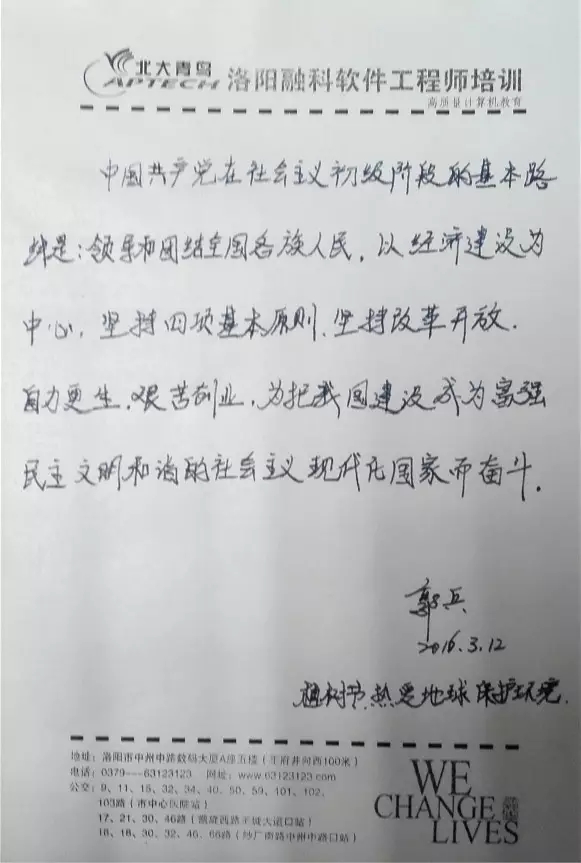 北大青鸟
APTECH
洛阳融科软件工程师培训
高质量计算机教育
中国共产党在社会主义初级阶段的基本路
线是：领导和团结全国各族人民，以经济建设为
中心，坚持四项基本原则，坚持改革开放，
自力更生，艰苦创业，为把我国建设成为富强
民主文明和谐的社会主义现代化国家而奋斗。
郭兵
2016.3.12
植树节，热爱地球 保护环境
地址：洛阳市中州中路数码大厦A座五楼（王府井向西100米）
电话：0379—63123123 网址：www.63123123.com
公交：9、11、15、32、34、40、50、59、101、102、
103路（市中心医院站）
17、21、30、46路（凯旋西路王城大道口站）
16、18、30、32、46、66路（纱厂南路中州中路口站）
WE
CHANGE
LIVES